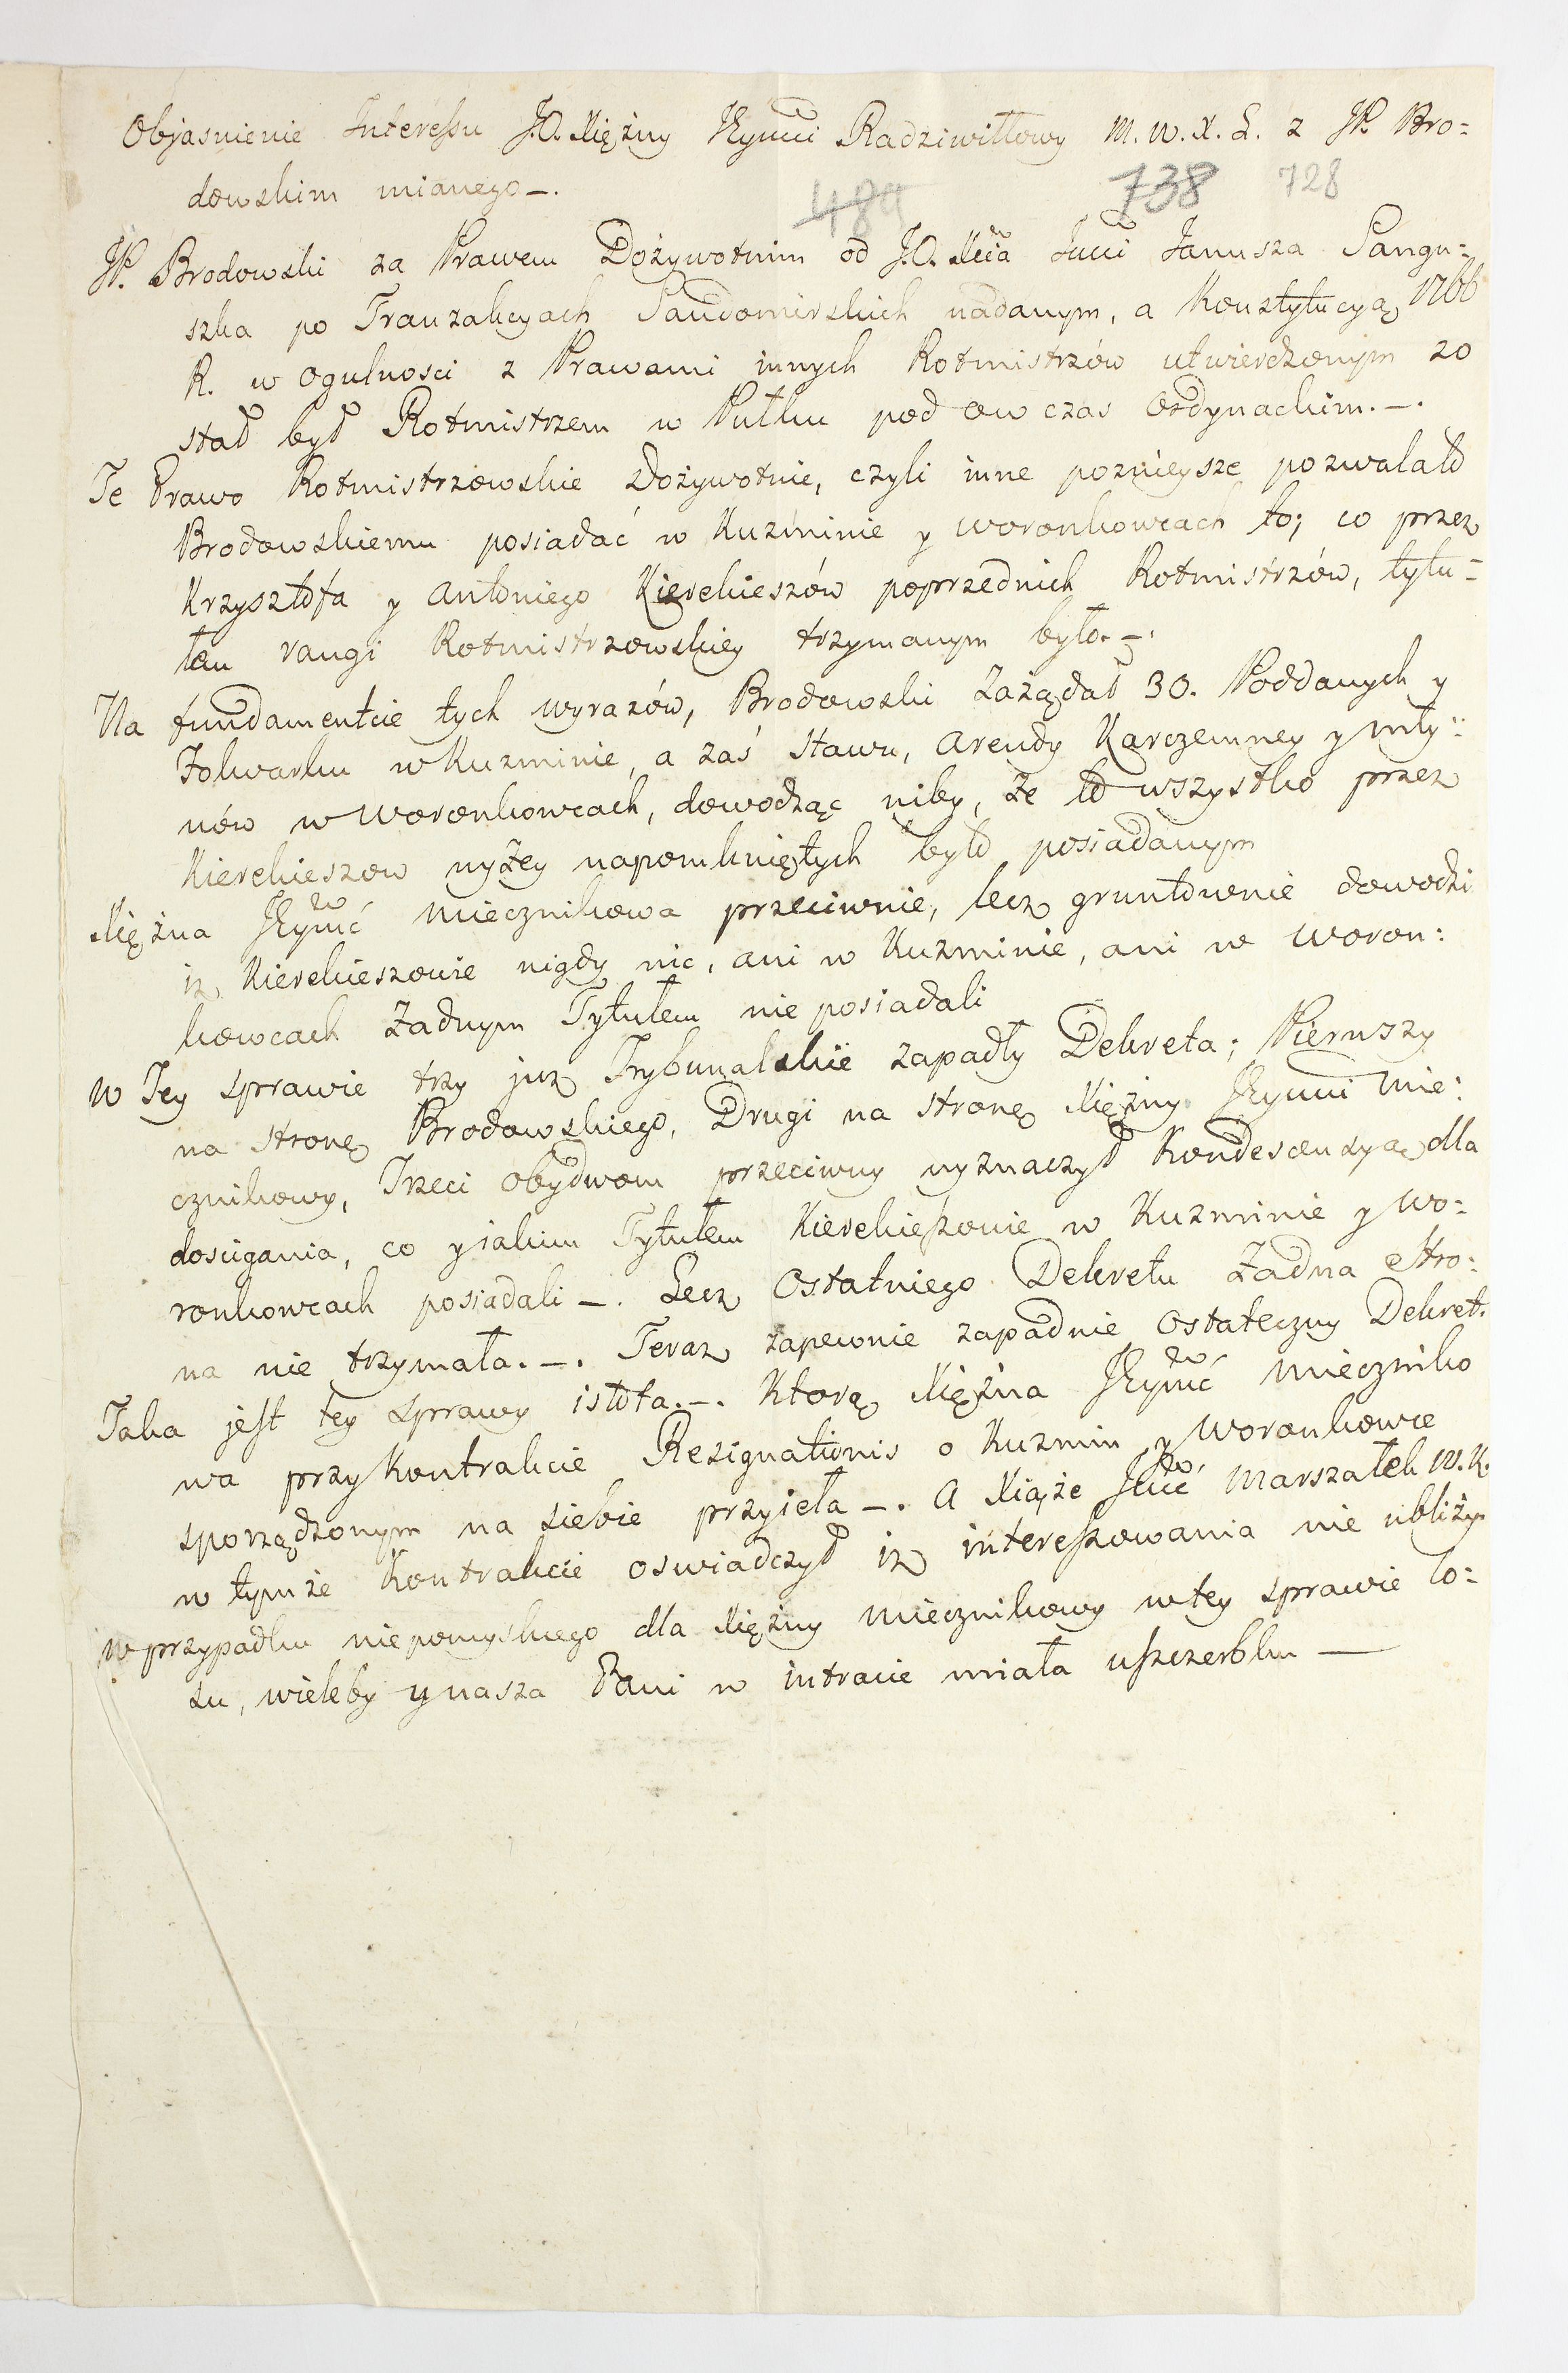 Objasnienie Interessu J.O. Xiężny Jeymci Radziwiłłowy M. W. X. L. z JP. Bro=
dowskim mianego –.
489 738 728
JP. Brodowski za Prawem Dożywotnim od J.O. Xcia Jmci Janusza Sangu=
szka po Tranzakcyach Sandomirskich nadanym, a Konstytucyą 1766
R. w ogulnosci z Prawami innych Rotmistrzów utwierdzonym zo
stał był Rotmistrzem w Pułku pod ow czas Ordynackim. –.
Te Prawo Rotmistrzowskie Dożywotnie, czyli inne poznieysze pozwalało
Brodowskiemu posiadać w Kuzminie y Woronkowcach to; co przez
Krzysztofa y Antoniego Kierekieszów poprzednich Rotmistrzów, tytu=
łem rangi Rotmistrzowskiey trzymanym było. –.
Na fundamentcie tych wyrazów, Brodowski zażądał 30. Poddanych y
Folwarku w Kuzminie, a zaś stawu, Arendy Karczemney y Mły=
nów w Woronkowcach, dowodząc niby, że to wszystko przez
Kierekieszow wyżey napomkniętych było posiadanym
Xiężna Jeymć Miecznikowa przeciwnie, lecz gruntownie dowodzi
iz Kierekieszowie nigdy nic, ani w Kuzminie, ani w Woron:
kowcach Żadnym Tytułem nie posiadali
W Tey sprawie trzy już Trybunalskie zapadły Dekreta; Pierwszy
na stronę Brodowskiego, Drugi na stronę Xiężny Jeymci Mie:
cznikowy, Trzeci obydwom przeciwny wyznaczył Kondescensyą dla
doscigania, co y jakim Tytułem Kierekieszowie w Kuzminie y Wo=
ronkowcach posiadali –. Lecz Ostatniego Dekretu Żadna Stro:
na nie trzymała. –. Teraz zapewnie zapadnie Ostateczny Dekret.
Taka jest tey sprawy istota. –. Ktorą Xiężna Jeymć Mieczniko
wa przy Kontrakcie Resignationis o Kuzmin y Woronkowce
sporządzonym na siebie przyieła –. A Xiąże Jmć Marszałek W. K.
w tymże Kontrakcie oswiadczył iz interessowania nie ubliży.
W przypadku niepomyslnego dla Xiężny Miecznikowy w tey sprawie lo=
su, wieleby y nasza Pani w intracie miała uszczerbku —